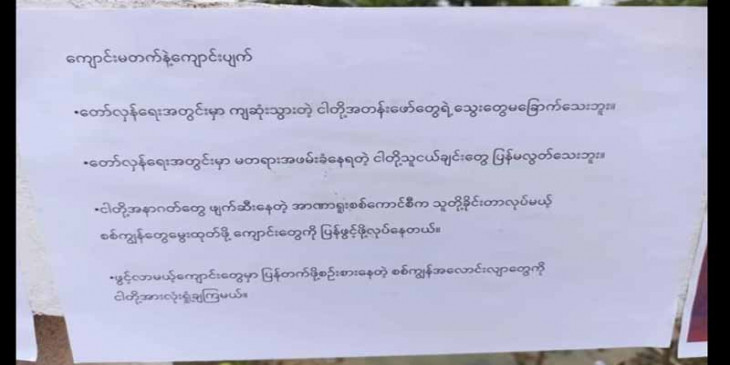 ကျောင်းမတက်နဲ့ကျောင်းပျက်
•တော်လှန်ရေးအတွင်းမှာ ကျဆုံးသွားတဲ့ ငါတို့အတန်းဖော်တွေရဲ့ သွေးတွေမခြောက်သေးဘူး။
•တော်လှန်ရေးအတွင်းမှာ မတရားအဖမ်းခံနေရတဲ့ ငါတို့သူငယ်ချင်းတွေ ပြန်မလွတ်သေးဘူး။
•ငါတို့အနာဂတ်တွေ ဖျက်ဆီးနေတဲ့ အာဏာရူးစစ်ကောင်စီက သူတို့ခိုင်းတာလုပ်မယ့်
စစ်ကျွန်တွေမွေးထုတ်ဖို့ ကျောင်းတွေကို ပြန်ဖွင့်ဖို့လုပ်နေတယ်။
•ဖွင့်လာမယ့်ကျောင်းတွေမှာ ပြန်တက်ဖို့စဉ်းစားနေတဲ့ စစ်ကျွန်အလောင်းလျာတွေကို
ငါတို့အားလုံးရှုံ့ချကြမယ်။